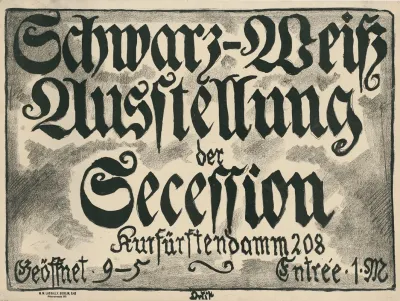 Schwarz-Weiß
Ausstellung
der
Secession
Kurfürstendamm 208
Geöffnet 9-5 Entrée 1 M